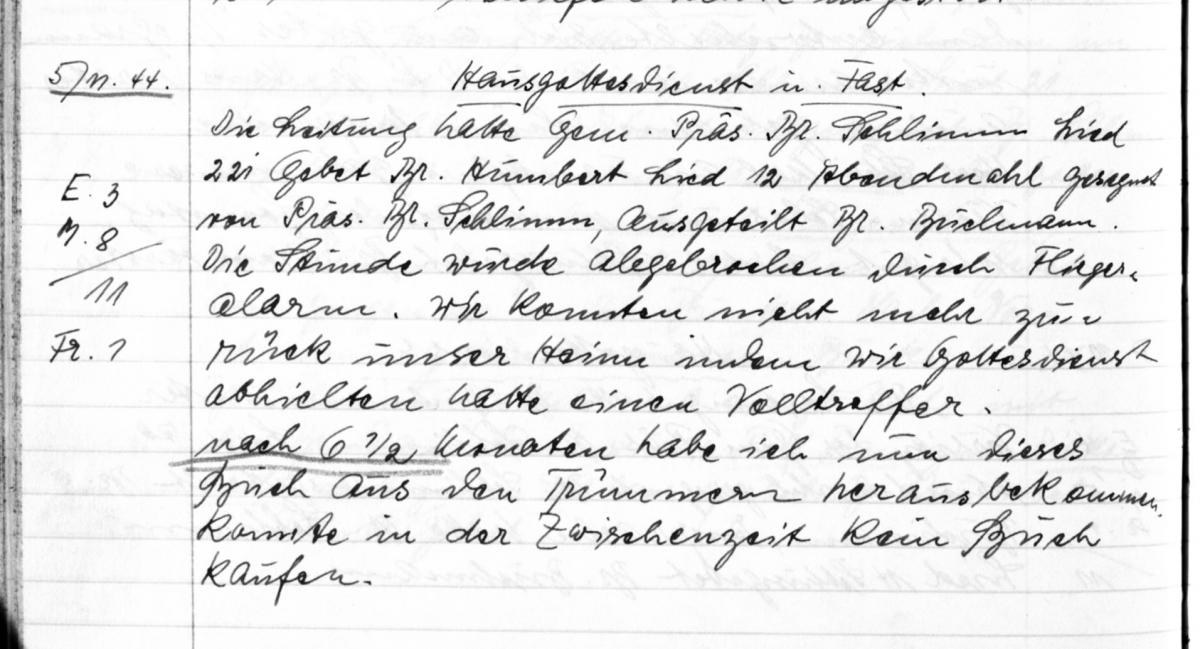 5/11. 44.
Hausgottesdienst u. Fast.
Die Leitung hatte Gem. Präs. Br. Schlimm Lied
221 Gebet Br. Humbert Lied 12 Abendmahl gesegnet
E. 3
von Präs. Br. Schlimm, Ausgeteilt Br. Buchmann.
M. 8
Die Stunde wurde abgebrochen durch Flieger-
11
alarm. wir konnten nicht mehr zu-
Fr. 1
rück unser Heim indem wir Gottesdienst
abhielten hatte einen Volltreffer.
nach 6 1/2 Monaten habe ich nun dieses
Buch aus den Trümmern herausbekommen.
konnte in der Zwischenzeit kein Buch
kaufen.